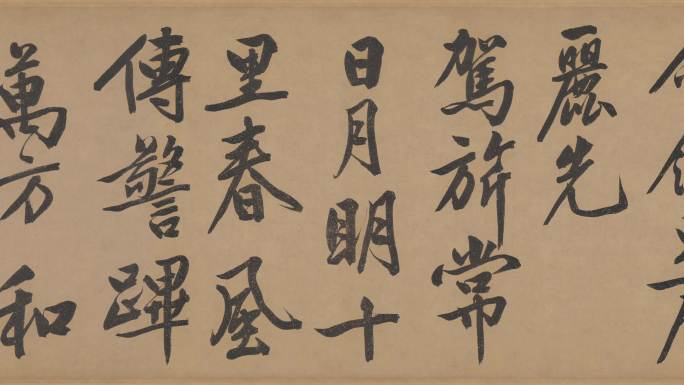 麗先
駕旂常
日月明十
里春風
傳警蹕
萬方和